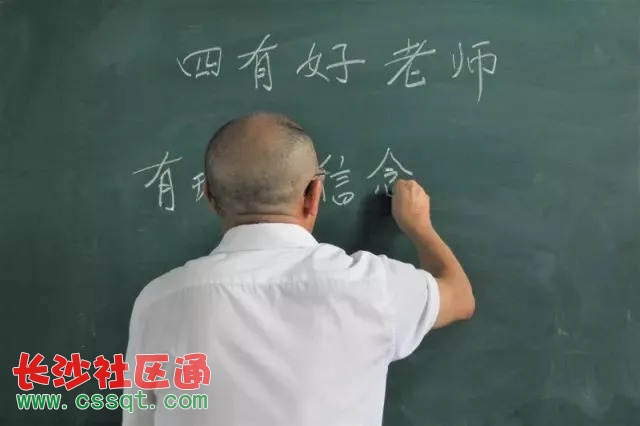 四有好老师
有 信念
长沙社区通
www.cssqt.com